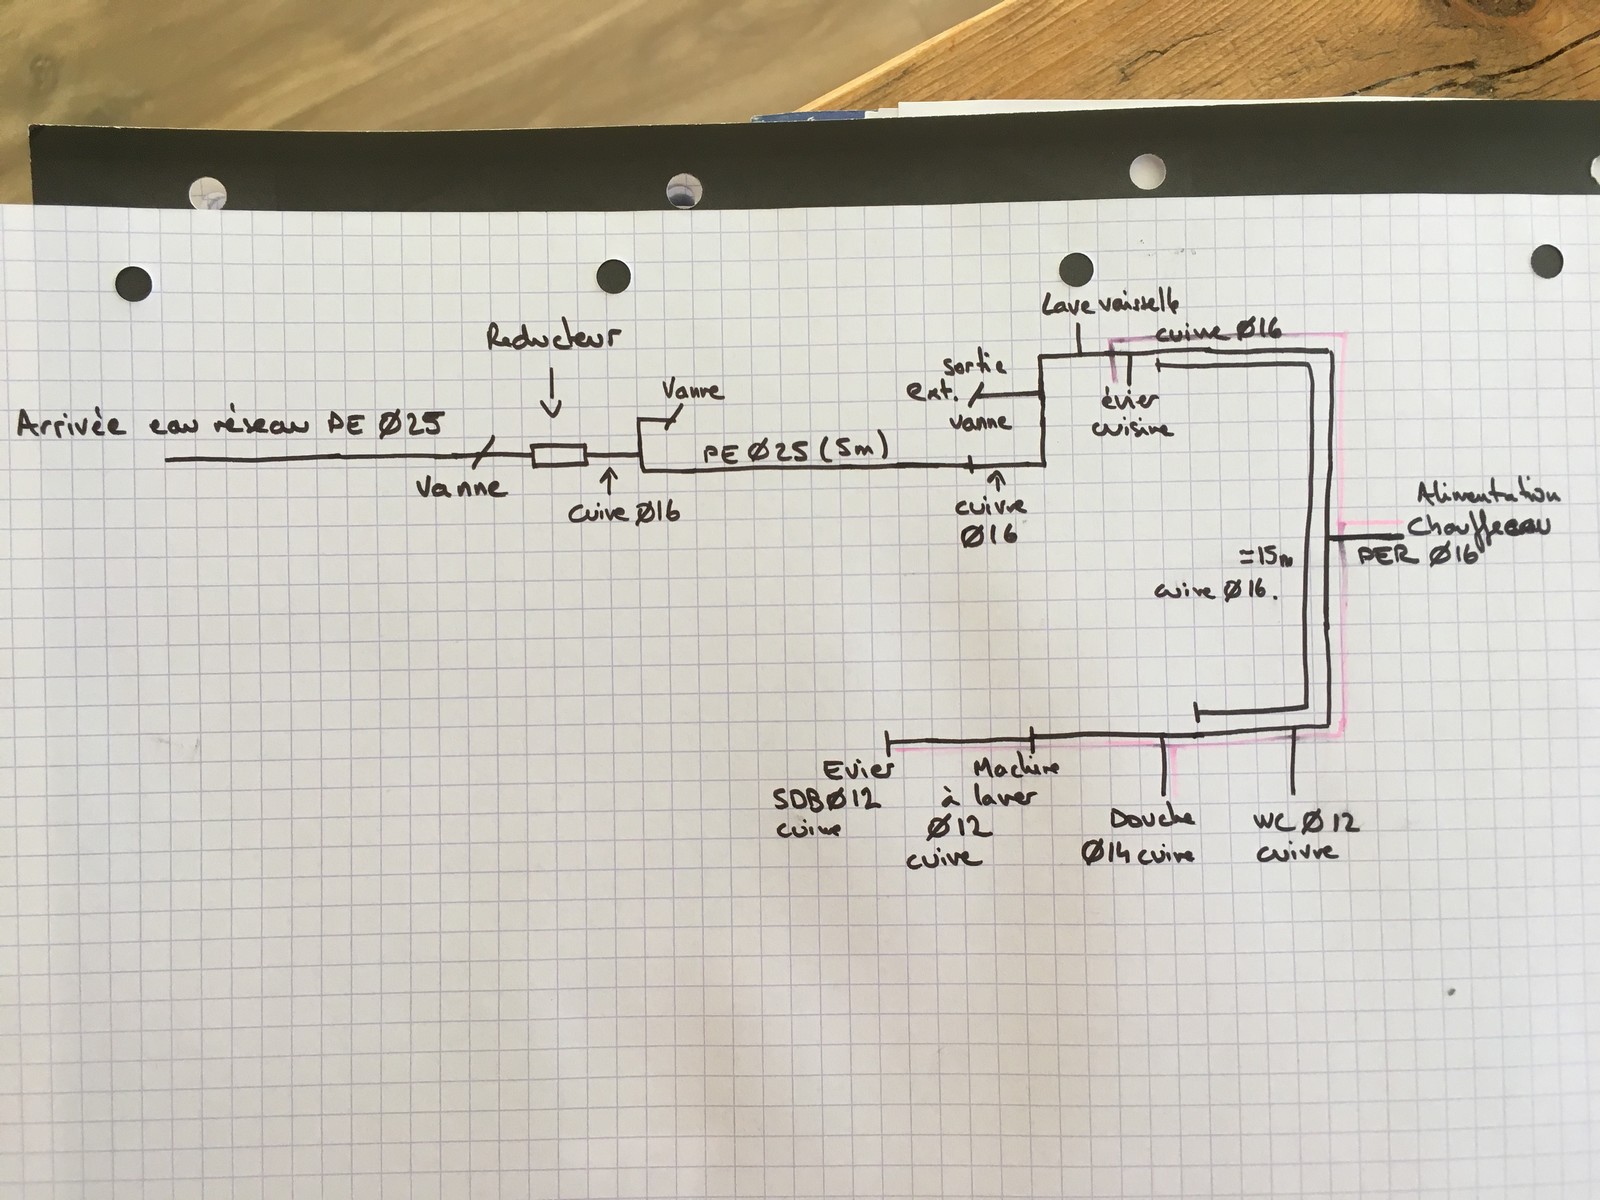 Reducteur
Arrivée eau réseau PE Ø25
Vanne
cuive Ø16
Vanne
PE Ø25 (5m)
cuivre
Ø16
Sortie
ext.
vanne
Lave vaisselle
cuivre Ø16
évier
cuisine
≃15m
cuive Ø16.
Alimentation
Chauffeeau
PER Ø16
Evier
SDB Ø12
cuivre
Machine
à laver
Ø12
cuive
Douche
Ø14 cuive
WC Ø12
cuivre